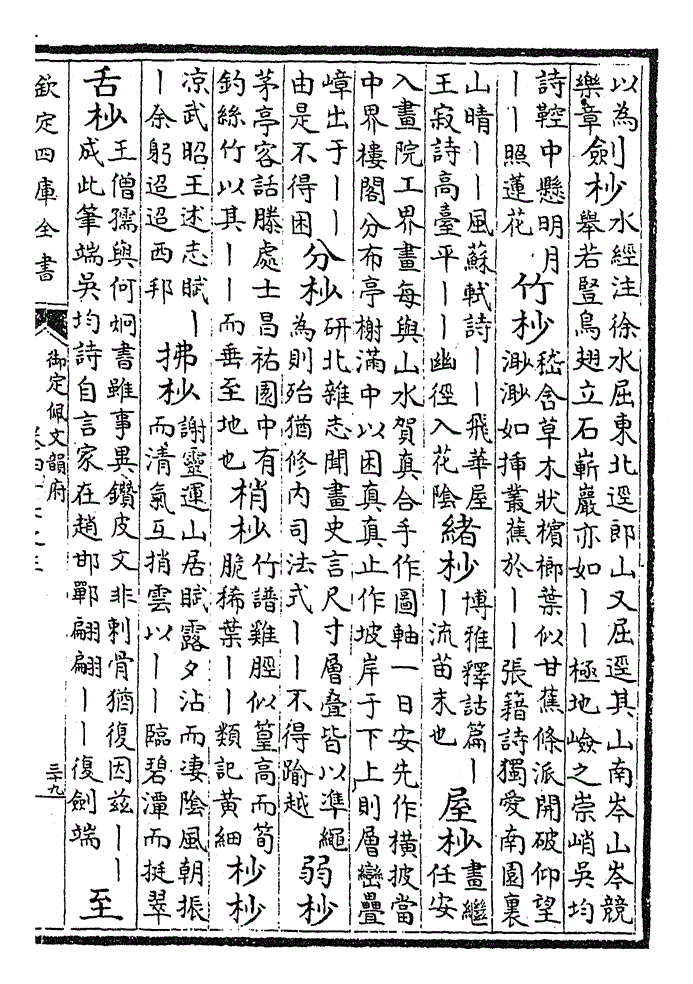 以為
樂章
劍杪
水經注徐水屈東北逕郎山又屈逕其山南岑山岑競
舉若豎鳥翅立石嶄巖亦如丨丨極地嶮之崇峭吳均
詩鞚中懸明月
丨丨照蓮花
竹杪
嵇含草木狀檳榔葉似甘蕉條派開破仰望
渺渺如揷叢蕉於丨丨張籍詩獨愛南園裏
山晴丨丨風蘇軾詩丨丨飛華屋
王寂詩高臺平丨丨幽徑入花陰
緒杪
博雅釋詁篇丨
丨流苗末也
屋杪
畫繼
任安
入畫院工界畫每與山水賀真合手作圖軸一日安先作橫披當
中界樓閣分布亭榭滿中以困真真止作坡岸于下上則層巒疊
嶂出于丨丨
由是不得困
分杪
研北雜志聞畫史言尺寸層疊皆以準繩
為則殆猶修內司法式丨丨不得踰越
弱杪
茅亭客話滕處士昌祐園中有
釣絲竹以其丨丨而垂至地也
梢杪
竹譜雞脛似篁高而筍
脆稀葉丨丨類記黃細
杪杪
凉武昭王述志賦丨
丨余躬迢迢西邦
拂杪
謝靈運山居賦露夕沾而凄陰風朝振
而清氣互捎雲以丨丨臨碧潭而挺翠
舌杪
王僧孺與何炯書雖事異鑽皮文非刺骨猶復因兹丨丨
成此筆端吳均詩自言家在趙邯鄲翩翩丨丨復劍端
至
欽定四庫全書
御定佩文韻府
三十九